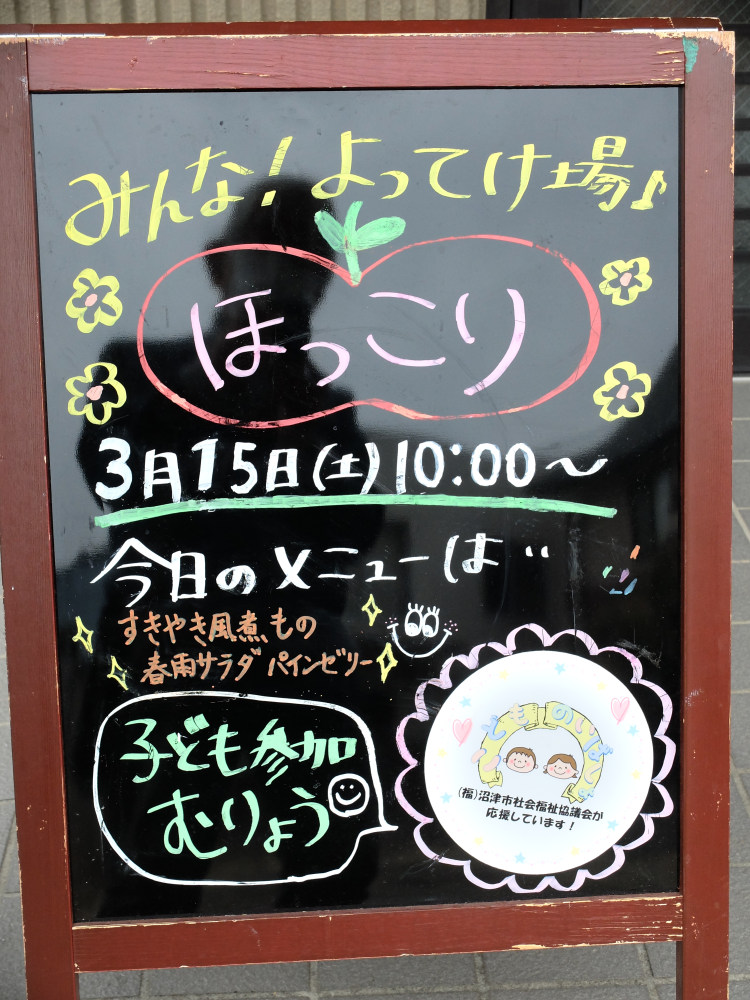 みんな！よってけ場♪
ほっこり
3月15日(土)10:00〜
今日のメニューは‥
すきやき風煮もの
春雨サラダ パインゼリー
子ども参加
むりょう
こどものいばしょ
(福)沼津市社会福祉協議会が
応援しています！